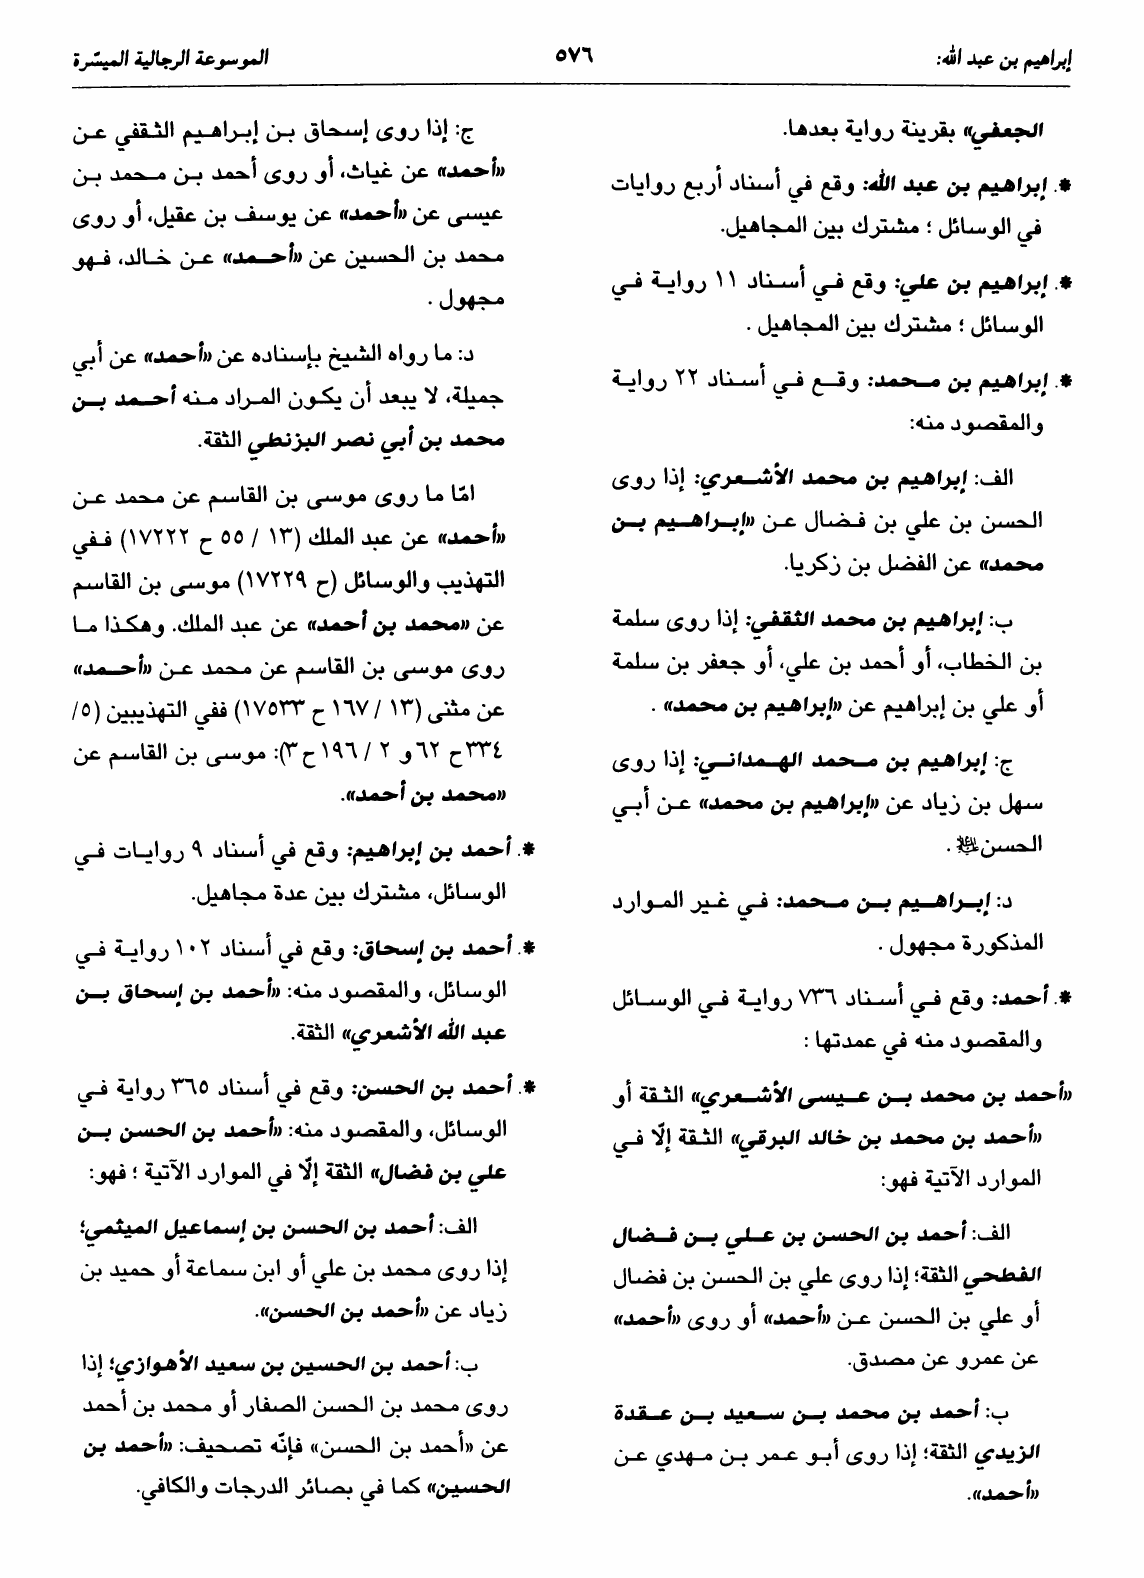 إبراهيم بن عبد الله: ٥٧٦ الموسوعة الرجالية الميسّرة
الجعفي» بقرينة رواية بعدها.
*. إبراهيم بن عبد الله: وقع في أسناد أربع روايات
في الوسائل ؛ مشترك بين المجاهيل.
*. إبراهيم بن علي: وقع في أسناد ١١ رواية في
الوسائل ؛ مشترك بين المجاهيل .
*. إبراهيم بن محمد: وقع في أسناد ٢٢ رواية
والمقصود منه:
الف: إبراهيم بن محمد الأشعري: إذا روى
الحسن بن علي بن فضال عن «إبراهيم بن
محمد» عن الفضل بن زكريا.
ب: إبراهيم بن محمد الثقفي: إذا روى سلمة
بن الخطاب، أو أحمد بن علي، أو جعفر بن سلمة
أو علي بن إبراهيم عن «إبراهيم بن محمد» .
ج: إبراهيم بن محمد الهمداني: إذا روى
سهل بن زياد عن «إبراهيم بن محمد» عن أبي
الحسن .
د: إبراهيم بن محمد: في غير الموارد
المذكورة مجهول .
*. أحمد: وقع في أسناد ٧٣٦ رواية في الوسائل
والمقصود منه في عمدتها :
«أحمد بن محمد بن عيسى الأشعري» الثقة أو
«أحمد بن محمد بن خالد البرقي» الثقة إلّا في
الموارد الآتية فهو:
الف: أحمد بن الحسن بن علي بن فضال
الفطحي الثقة؛ إذا روى علي بن الحسن بن فضال
أو علي بن الحسن عن «أحمد» أو روى «أحمد»
عن عمرو عن مصدق.
ب: أحمد بن محمد بن سعيد بن عقدة
الزيدي الثقة؛ إذا روى أبو عمر بن مهدي عن
«أحمد».
ج: إذا روى إسحاق بن إبراهيم الثقفي عن
«أحمد» عن غياث، أو روى أحمد بن محمد بن
عيسى عن «أحمد» عن يوسف بن عقيل، أو روى
محمد بن الحسين عن «أحمد» عن خالد، فهو
مجهول .
د: ما رواه الشيخ بإسناده عن «أحمد» عن أبي
جميلة، لا يبعد أن يكون المراد منه أحمد بن
محمد بن أبي نصر البزنطي الثقة.
امّا ما روى موسى بن القاسم عن محمد عن
«أحمد» عن عبد الملك (١٣ / ٥٥ ح ١٧٢٢٢) ففي
التهذيب والوسائل (ح ١٧٢٢٩) موسى بن القاسم
عن «محمد بن أحمد» عن عبد الملك. وهكذا ما
روى موسى بن القاسم عن محمد عن «أحمد»
عن مثنى (١٣ / ١٦٧ ح ١٧٥٣٣) ففي التهذيبين (٥/
٣٣٤ح ٦٢ و ٢ / ١٩٦ ح٣): موسى بن القاسم عن
«محمد بن أحمد».
*. أحمد بن إبراهيم: وقع في أسناد ٩ روايات في
الوسائل، مشترك بين عدة مجاهيل.
*. أحمد بن إسحاق: وقع في أسناد ١٠٢ رواية في
الوسائل، والمقصود منه: «أحمد بن إسحاق بن
عبد الله الأشعري» الثقة.
*. أحمد بن الحسن: وقع في أسناد ٣٦٥ رواية في
الوسائل، والمقصود منه: «أحمد بن الحسن بن
علي بن فضال» الثقة إلّا في الموارد الآتية ؛ فهو:
الف: أحمد بن الحسن بن إسماعيل الميثمي؛
إذا روى محمد بن علي أو ابن سماعة أو حميد بن
زياد عن «أحمد بن الحسن».
ب: أحمد بن الحسين بن سعيد الأهوازي؛ إذا
روى محمد بن الحسن الصفار أو محمد بن أحمد
عن «أحمد بن الحسن» فإنّه تصحيف: «أحمد بن
الحسين» كما في بصائر الدرجات والكافي.